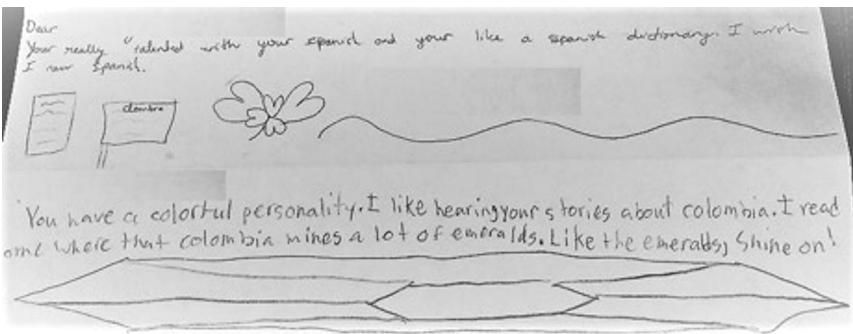 Dear
Your really talented with your spanish and your like a spanish dictionary. I wish
I new Spanish.
You have a colorful personality. I like hearing your stories about colombia. I read
ome where that colombia mines a lot of emeralds. Like the emeralds, Shine on!